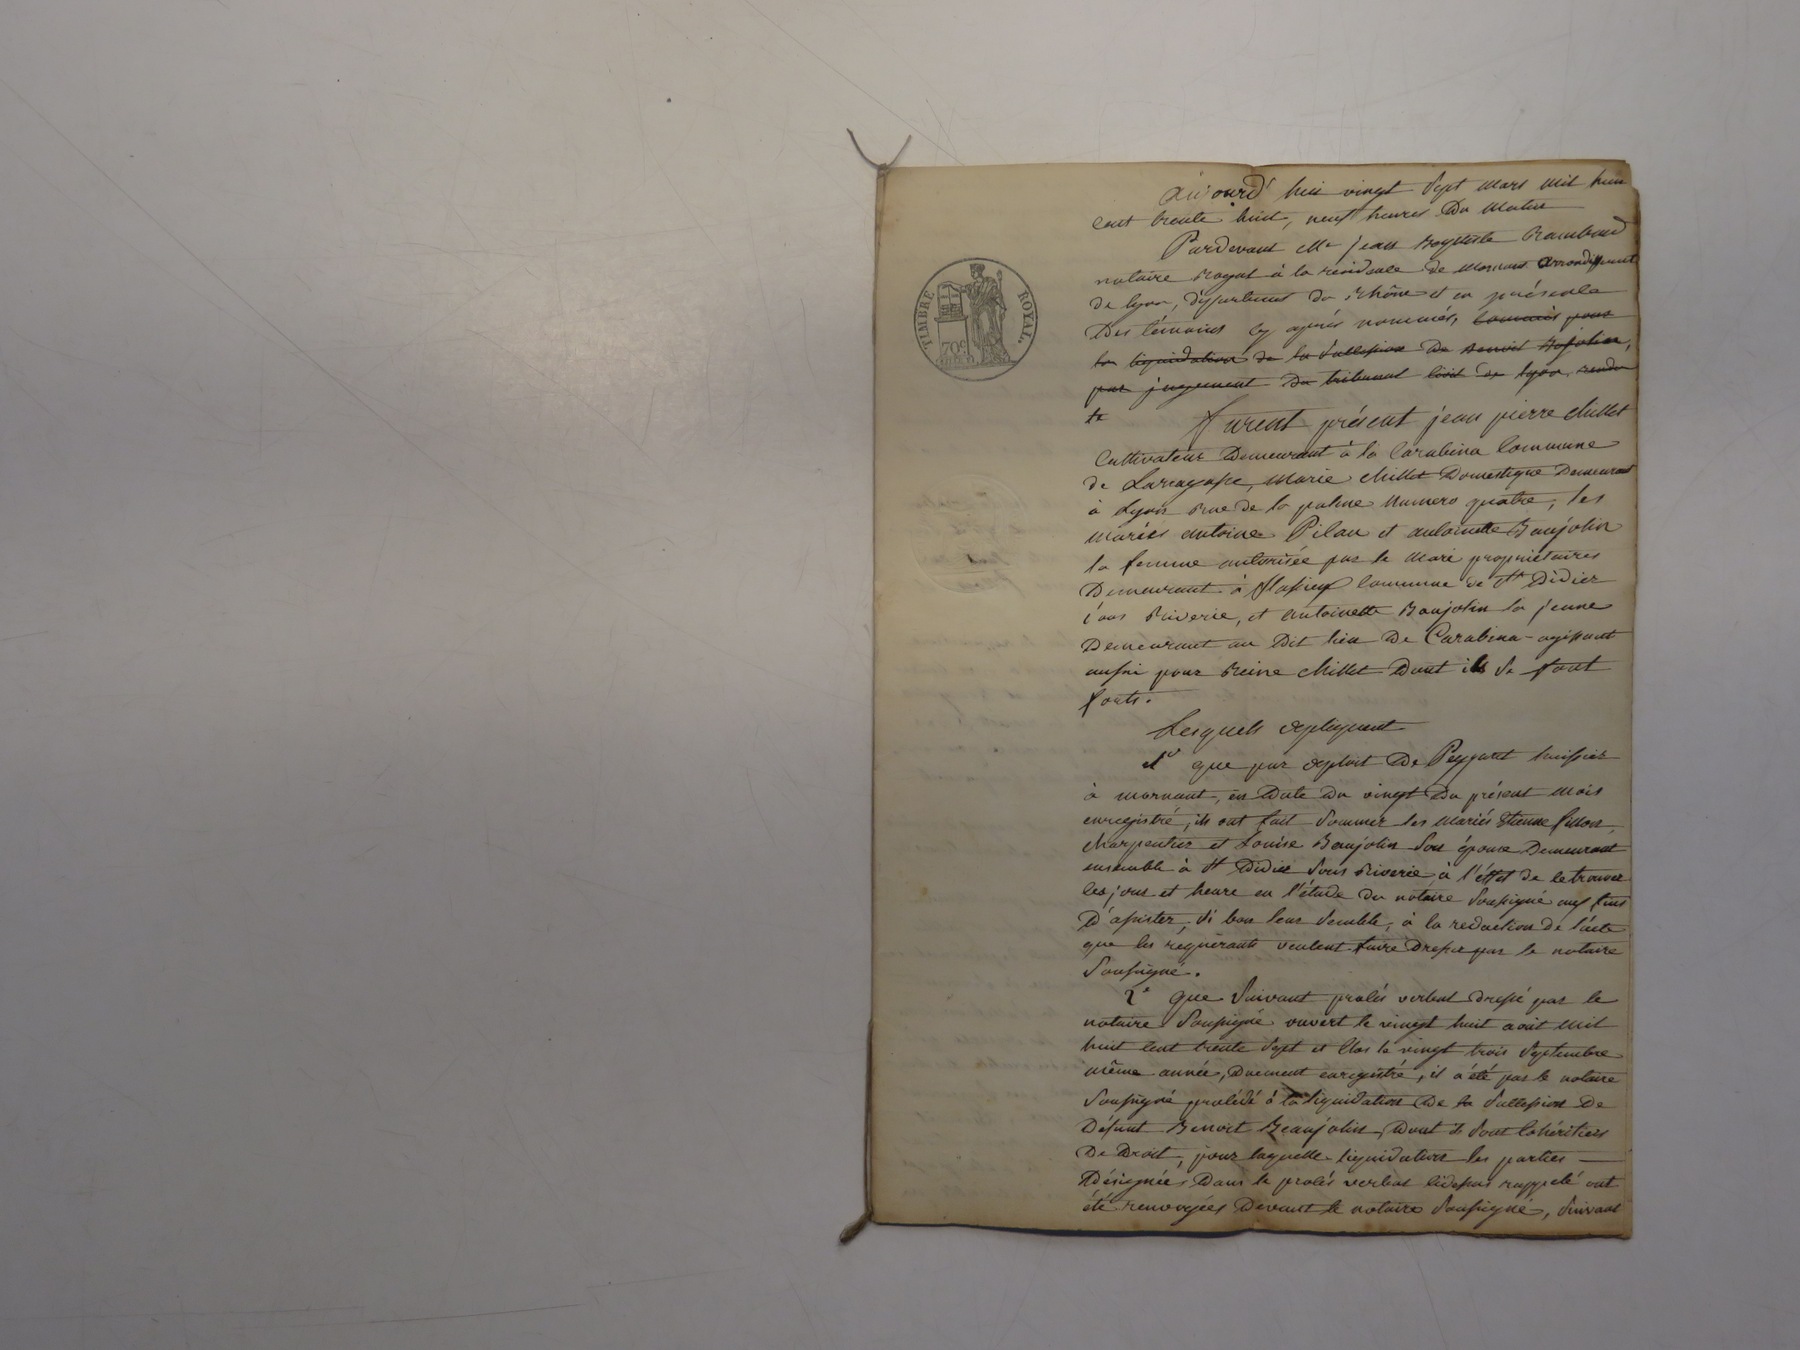 TIMBRE ROYAL
70c
aujourd'hui vingt sept mars mil huit
cent trente huit, neuf heures du matin
Pardevant Me jean Baptiste Rambaud
notaire Royal à la résidence de Mornant arrondissement
de lyon, département du Rhône et en présence
des témoins cy après nommés, commis pour
la liquidation de la succession de Benoit Bojolin,
par jugement du tribunal civil de lyon, rendu
le
furent présent jean pierre Millet
Cultivateur demeurant à la Carabina Commune
de Larajasse, Marie Millet domestique demeurant
à Lyon Rue de la Numero quatre, les
mariés antoine Pilau et antoinette Baujolin
la femme autorisée par le mari propriétaires
demeurant à commune de St Didier
sous Riverie, et antoinette Baujolin la jeune
demeurant au dit lieu de Carabina agissant
aussi pour Reine Millet dont ils se font
forts.
Lesquels expliquent
1o que par exploit de huissier
à mornant, en date du vingt du présent mois
enregistré, ils ont fait sommer les mariés Etienne
charpentier et Louise Beaujolin son épouse demeurant
ensemble à St Didier sous Riverie à l'éffet de se trouver
ces jour et heure en l'étude du notaire soussigné aux fins
d'assister, si bon leur semble, à la redaction de l'acte
que les requérants veulent faire dresser par le notaire
soussigné.
2o que suivant procès verbal dressé par le
notaire soussigné ouvert le vingt huit aout mil
huit cent trente sept et clos le vingt trois septembre
même année, duement enregistré, il a été par le notaire
soussigné procédé à la liquidation de la succession de
défunt Benoit Beaujolin, dont ils sont cohéritiers
de droit, pour laquelle liquidation les parties
désignées dans le procès verbal cidessus rappelé ont
été renvoyées devant le notaire soussigné, suivant